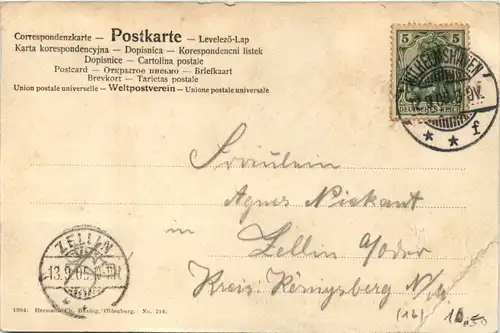 Correspondenzkarte — Postkarte — Levelező-Lap
Karta korespondencyjna — Dopisnica — Korespondencni listek
Dopisnice — Cartolina postale
Postcard — Открытое письмо — Briefkaart
Brevkort — Tarietas postale
Union postale universelle — Weltpostverein — Unione postale universale
5 5
DEUTSCHES REICH
WILHELMSHAVEN
* * f
Fräulein
Agnes
in
Zellin a/Oder
Kreis: Königsberg N/M
ZELLIN
13.9.05
1904. Hermann Oldenburg. No. 216.
(16)